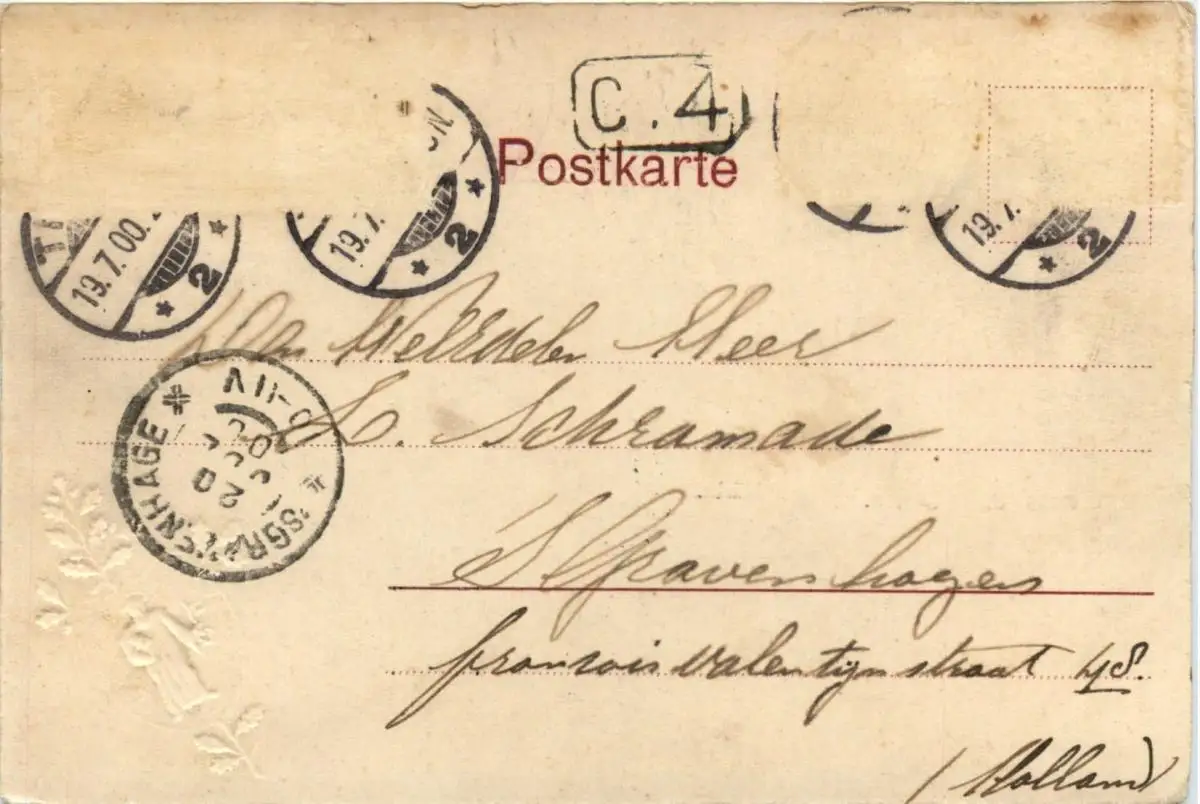 C.4
Postkarte
19.7.00.
2
19.7.
2
19.7.
2
Den WelEdelen Heer
L. Schramade
'SGRAVENHAGE
20
S Gravenhagen
francois valentijn straat 48.
(Holland)